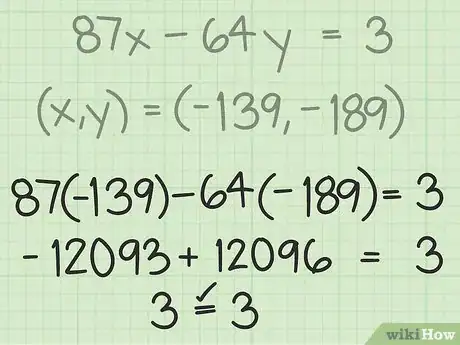 87x - 64y = 3
(x,y) = (-139, -189)
87(-139)-64(-189)= 3
-12093 + 12096 = 3
3 = 3
✓
wikiHow